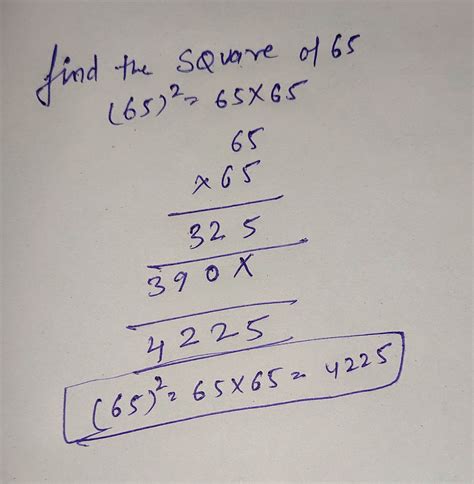 find the square of 65
(65)²= 65×65
65
×65
325
390×
4225
(65)²= 65×65= 4225